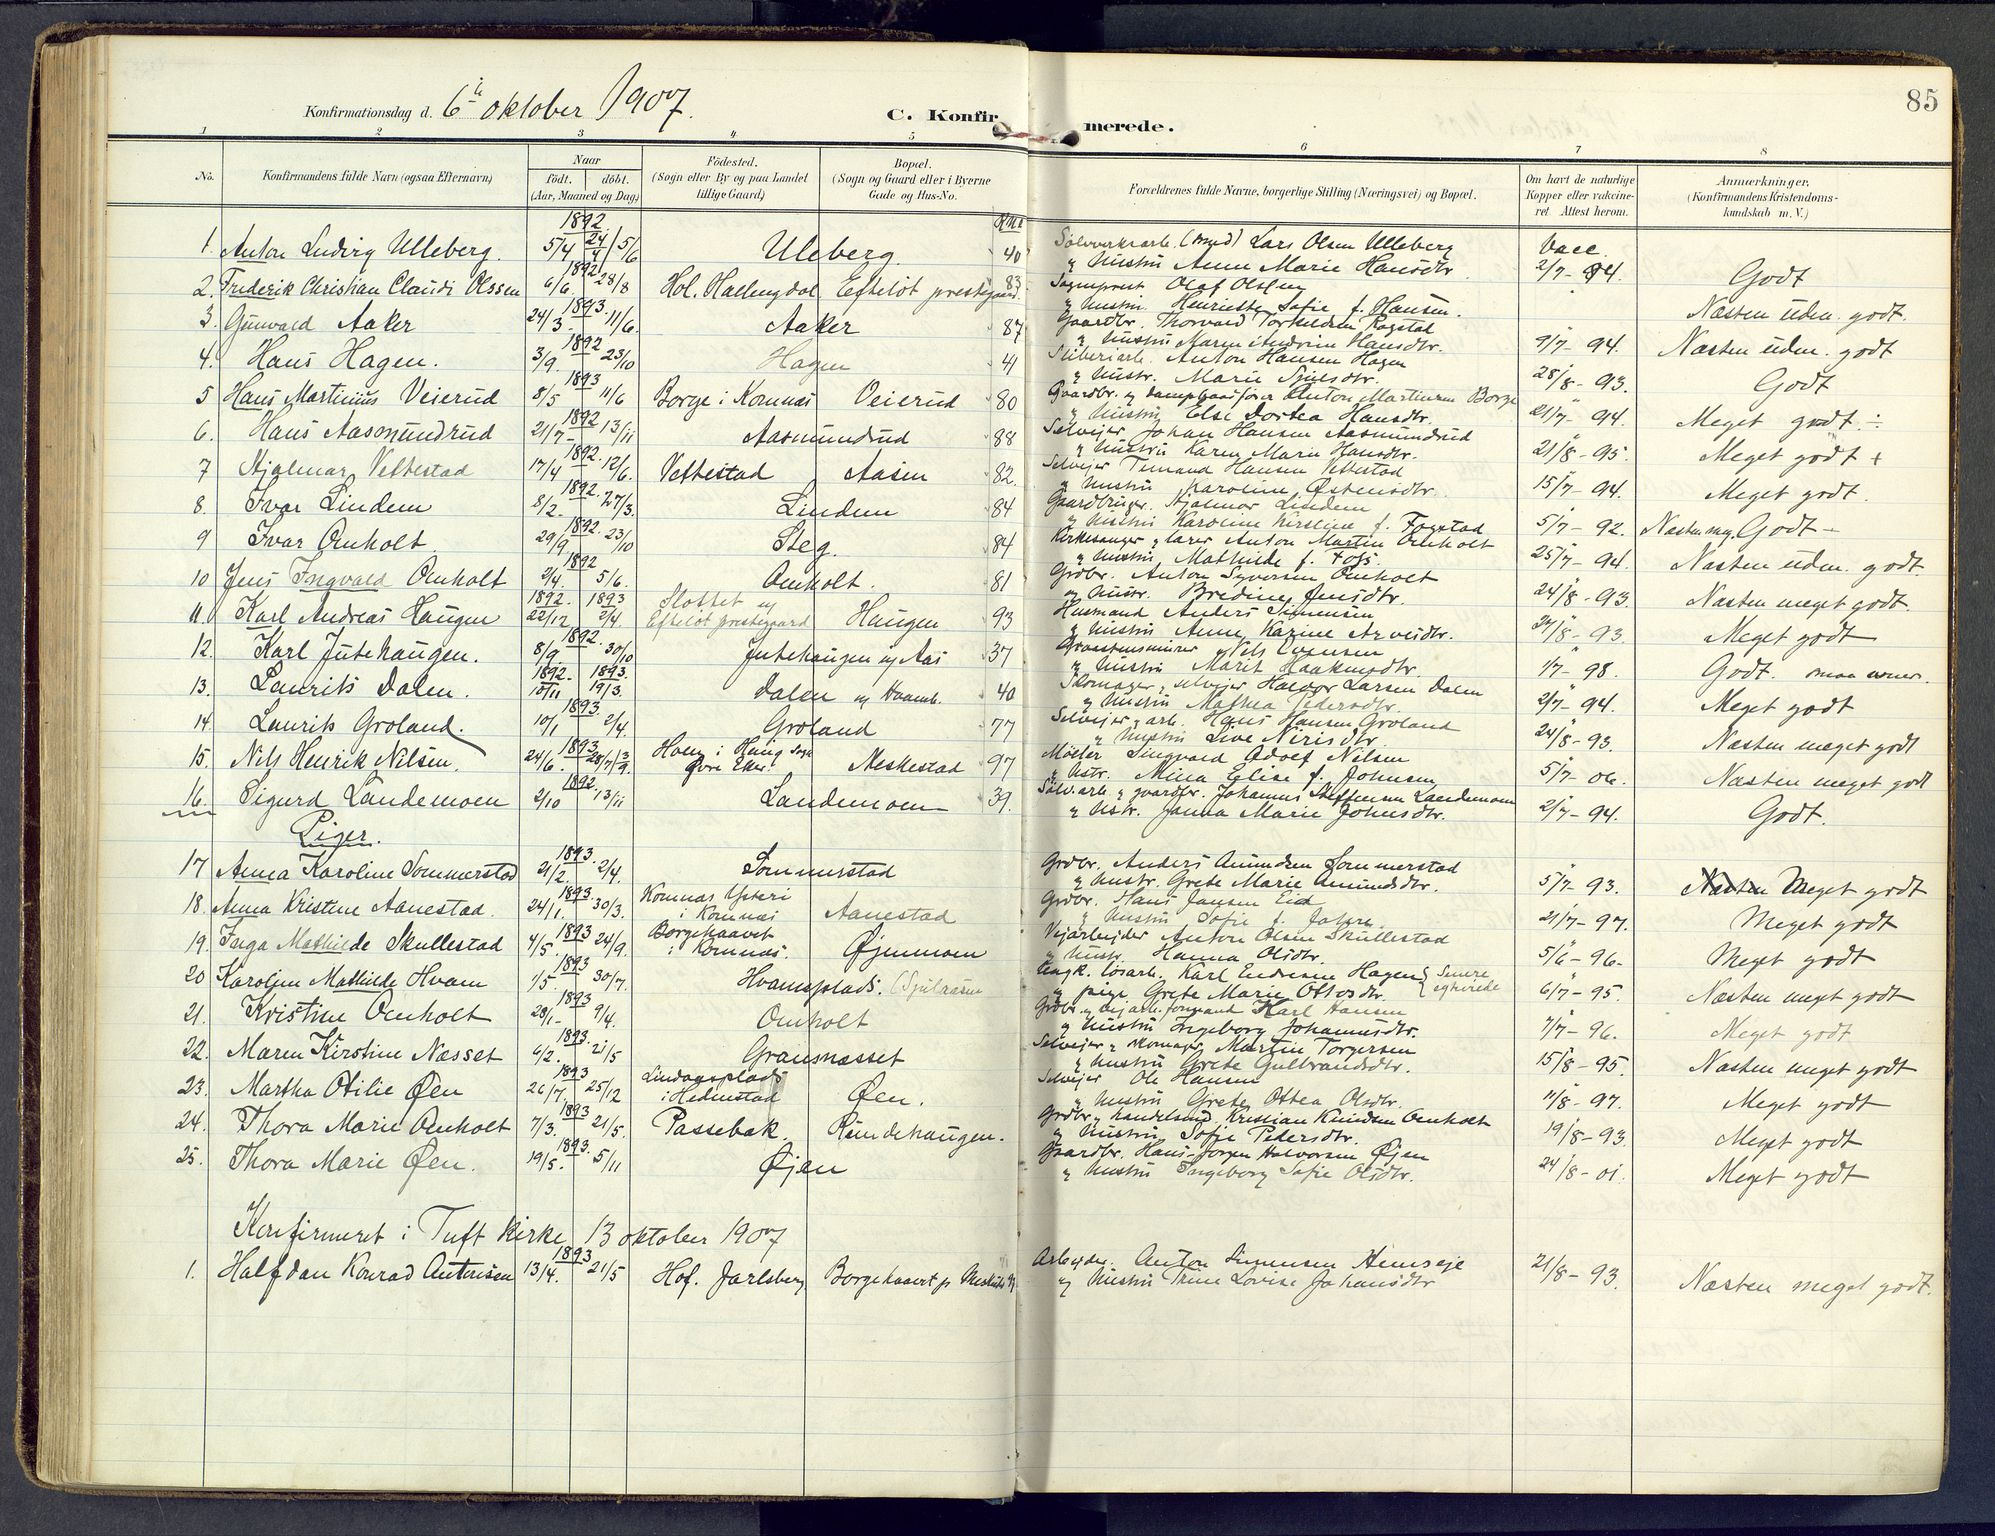 85
Konfirmationsdag d. 6te oktober 1907.
C. Konfirmerede.
1 2 3 4 5 6 7 8
No.
Konfirmandens fulde Navn (ogsaa Efternavn)
Naar
født. døbt.
(Aar, Maaned og Dag)
Fødested.
(Sogn eller By og paa Landet
tillige Gaard)
Bopæl.
(Sogn og Gaard eller i Byerne
Gade og Hus-No.
Forældrenes fulde Navne, borgerlige Stilling (Næringsvei) og Bopæl.
Om havt de naturlige
Kopper eller vakcine-
ret. Attest herom.
Anmærkninger.
(Konfirmandens Kristendoms-
kundskab m. V.)
1. Anton Ludvig Ulleberg. 1892 5/4 24/4 5/6 Uleberg. 40 Sølvverksarb. (smed) Lars Olsen Ulleberg Vacc.
" Hustru Anne Marie Hansdtr. 2/7-94. Godt
2. Frederik Christian Claudi Olssen 1892 6/6. 28/8 Hol. Hallingdal Efteløt prestegaard 83 Sogneprest Olaf Olssen
" Hustru Henriette Sofie f. Hansen. Næsten uden. godt.
3. Gunvald Aaker 1893. 24/3. 11/6. Aaker 87 Gaardbr. Thorvald Torkildsen Rogstad
" Hustru Maren Andrine Hansdtr. 9/7-94. Næsten uden. godt
4. Hans Hagen. 1892 3/9. 23/10 Hagen 41 Sliberiarb. Anton Hansen Hagen
" Hustr. Marie Sjulsdtr. 28/8-93. Godt
5 Hans Martinius Veierud 1893 8/5 11/6 Borge i Komnæs Veierud 80 Gaardbr. og Anton Martinsen Borge
" Hustru Else Dortea Hansdtr. 21/7-94. Meget godt ÷
6. Hans Aasmundrud 1892 21/7- 13/11 Aasmundrud 88 Selveier Johan Hansen Aasmundrud
" Hustru Karen Marie Hansdtr. 21/8-95. Meget godt +
7 Hjalmar Vettestad 1892. 17/4 12/6. Vettestad Aasen 82. Selveier Hansen Vettestad
" Hustru Karoline Østensdtr. 15/7-94. Meget godt.
8 Ivar Lindem 1892. 8/2. 27/3. Lindem 84 Gaardbruger. Hjalmar Lindem
" Hustru Karoline Kirstine f. Fogstad 5/7-92. Næsten meg. Godt -
9 Ivar Omholt 1892. 29/9. 23/10 Steg. 84 Kirkesanger og lærer Anton Martin Omholt
" Hustru Mathilde f. Foss. 25/7-94. Næsten uden. godt.
10 Jens Ingvald Omholt 1892 2/4. 5/6. Omholt. 81 Grdbr. Anton Syversen Omholt
og Hustr. Bredine Jensdtr. 24/8-93. Næsten meget godt.
11. Karl Andreas Haugen 1892. 22/12 1893 2/4. Slottet og Efteløt prestegaard Haugen 93 Husmand Anders Simensen
" Hustru Anne Karine Arvesdtr. 24/8-93. Meget godt
12. Karl Jutehaugen. 1892. 8/9 30/10 Jutehaugen og Aas 37 Graastensmurer Nils Evensen
" Hustru Marit Haakensdtr. 1/7-98. Godt.
13. Laurits Dalen. 1892. 10/11 1893. 19/3. Dalen og Hvamb. 40 Skomager, selveier Halvor Larsen Dalen
" Hustru Mathea Pedersdtr. 2/7-94. Meget godt
14. Laurits Groland. 1893. 10/1 2/4. Groland 77 Selveier og arb. Hans Hansen Groland
" Hustru Live Nirisdtr. 24/8-93. Næsten meget godt
15. Nils Henrik Nilsen. 1893. 24/6. Hoen i Haug sogn Øvre Eker. Meskestad 97 Møller Singvard Adolf Nilsen
" Hstr. Mina Elise f. Johnsen 5/7-06. Næsten meget godt
16. Sigurd Landemoen 1892. 2/10 13/11 Landemoen 39. Sølv.arb. og gaardbr. Johannes Steffensen Landemoen
" Hstr. Janna Marie Johnsdtr. 2/7-94. Godt.
Piger.
17 Anna Karoline Sommerstad 1893. 21/2. 2/4. Sommerstad Grdbr. Anders Amundsen Sommerstad
" Hustr. Grete Marie Amundsdtr. 5/7-93. Næsten Meget godt
18. Anna Kristine Aanestad. 1893. 24/1. 30/3. Komnæs Ysteri i Komnæs Aanestad Grdbr. Hans Jansen Eid
" Hustru Sofie f. 21/7-97. Meget godt
19. Inga Mathilde Skullestad 1893 4/5. 24/9. Borgehaavet i Komnæs. Øjenmoen Vejarbejder Anton Olsen Skullestad
" Hustr. Hanna Olsdtr. 5/6-96. Meget godt
20 Karoline Mathilde Hvam 1893 1/5. 30/7. Hvamsplads. Ungk. løsarb. Karl Endresen Hagen (Senere
og pige Grete Marie Ottosdtr. egteviede 6/7-95. Næsten meget godt
21. Kristine Omholt 1893 28/1- 9/4. Omholt Grdbr. og vejarb. formand Karl Hansen
" Hustru Ingeborg Johannesdtr. 7/7-96. Meget godt
22. Maren Kirstine Næsset 1893. 6/2. 21/5 Gransnæsset Selveier og skomager Martin Torgersen
" Hustru Grete Gulbrandsdtr. 15/8-95. Næsten meget godt
23. Martha Otilie Øen 1893 26/7. 25/12 Lindaasplads i Hedenstad Øen. Selveier Ole Hansen
" Hustru Grete Ottea Olsdtr. 11/8-97. Meget godt
24. Thora Marie Omholt 1893 7/3. 21/5. Passebæk. Rundehaugen. Grdbr. og handelsmd. Kristian Knudsen Omholt
" Hustru Sofie Pedersdtr. 19/8-93. Meget godt
25. Thora Marie Øen. 1893. 19/5. 5/11 Øjen Gaardbr. Hans Jørgen Halvorsen Øjen
" Hustru Ingeborg Sofie Olsdtr. 24/8-01. Meget godt
Konfirmeret i Tuft kirke 13 oktober 1907
1. Halfdan Konrad Antonsen 1893 13/4. 21/5 Hof. Jarlsberg Borgehaavet Arbeyder. Anton Simensen
og Hustru Trine Lovise Johansdtr 21/8-93. Næsten meget godt.